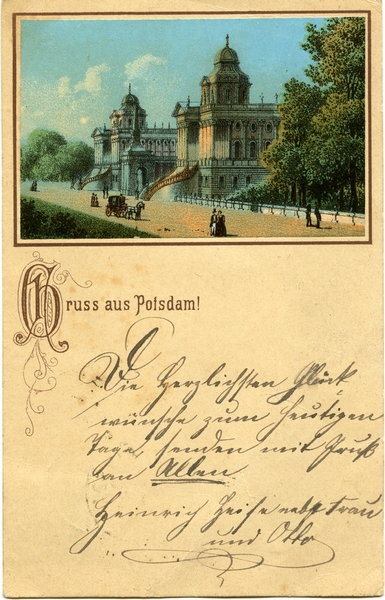 Gruss aus Potsdam!
Die Herzlichsten Glück
wünsche zum heutigen
Tage, senden mit Gruß
an Allen
Heinrich Heise nebst Frau
und Otto